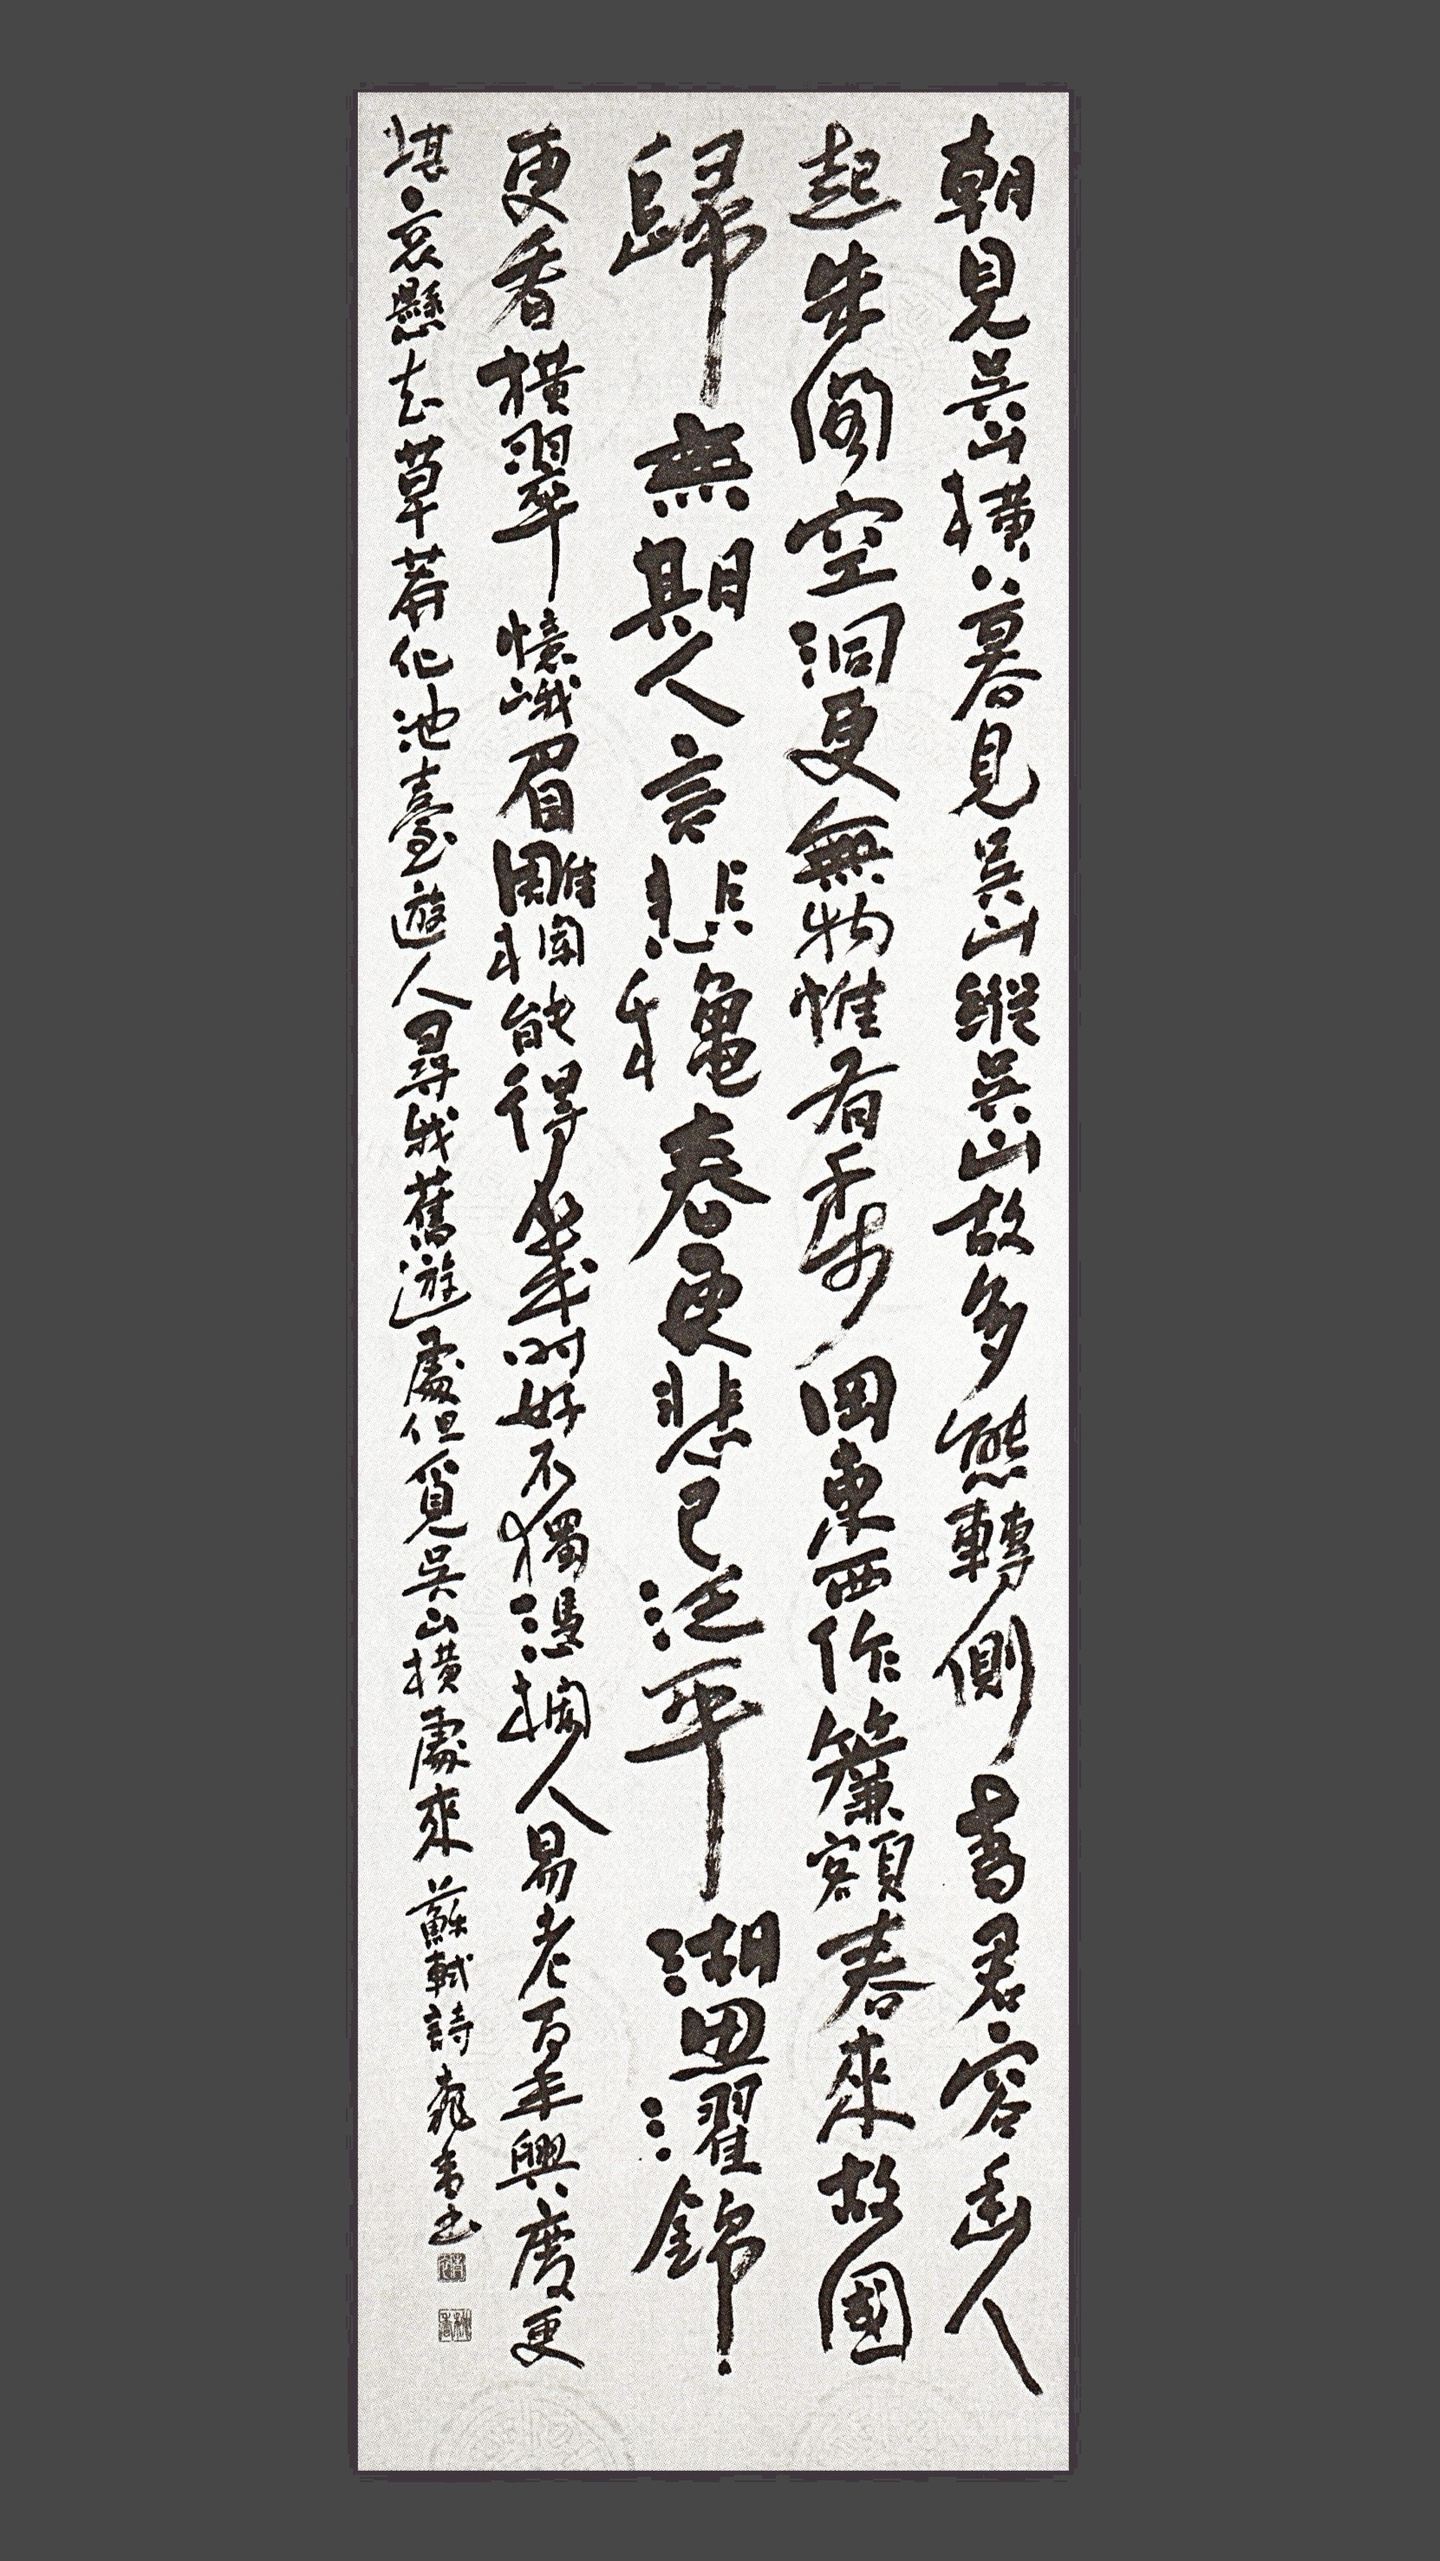 朝見吳山橫暮見吳山縱吳山故多態轉側為君容幽人
起朱閣空洞更無物惟有千步岡東西作簾額春來故國
歸無期人言悲穐春更悲已泛平湖思濯錦
更看橫翠憶峨眉雕欄能得幾時好不獨憑欄人易老百年興廢更
堪哀懸知草莽化池臺遊人尋我舊遊處但覓吳山橫處來蘇軾詩